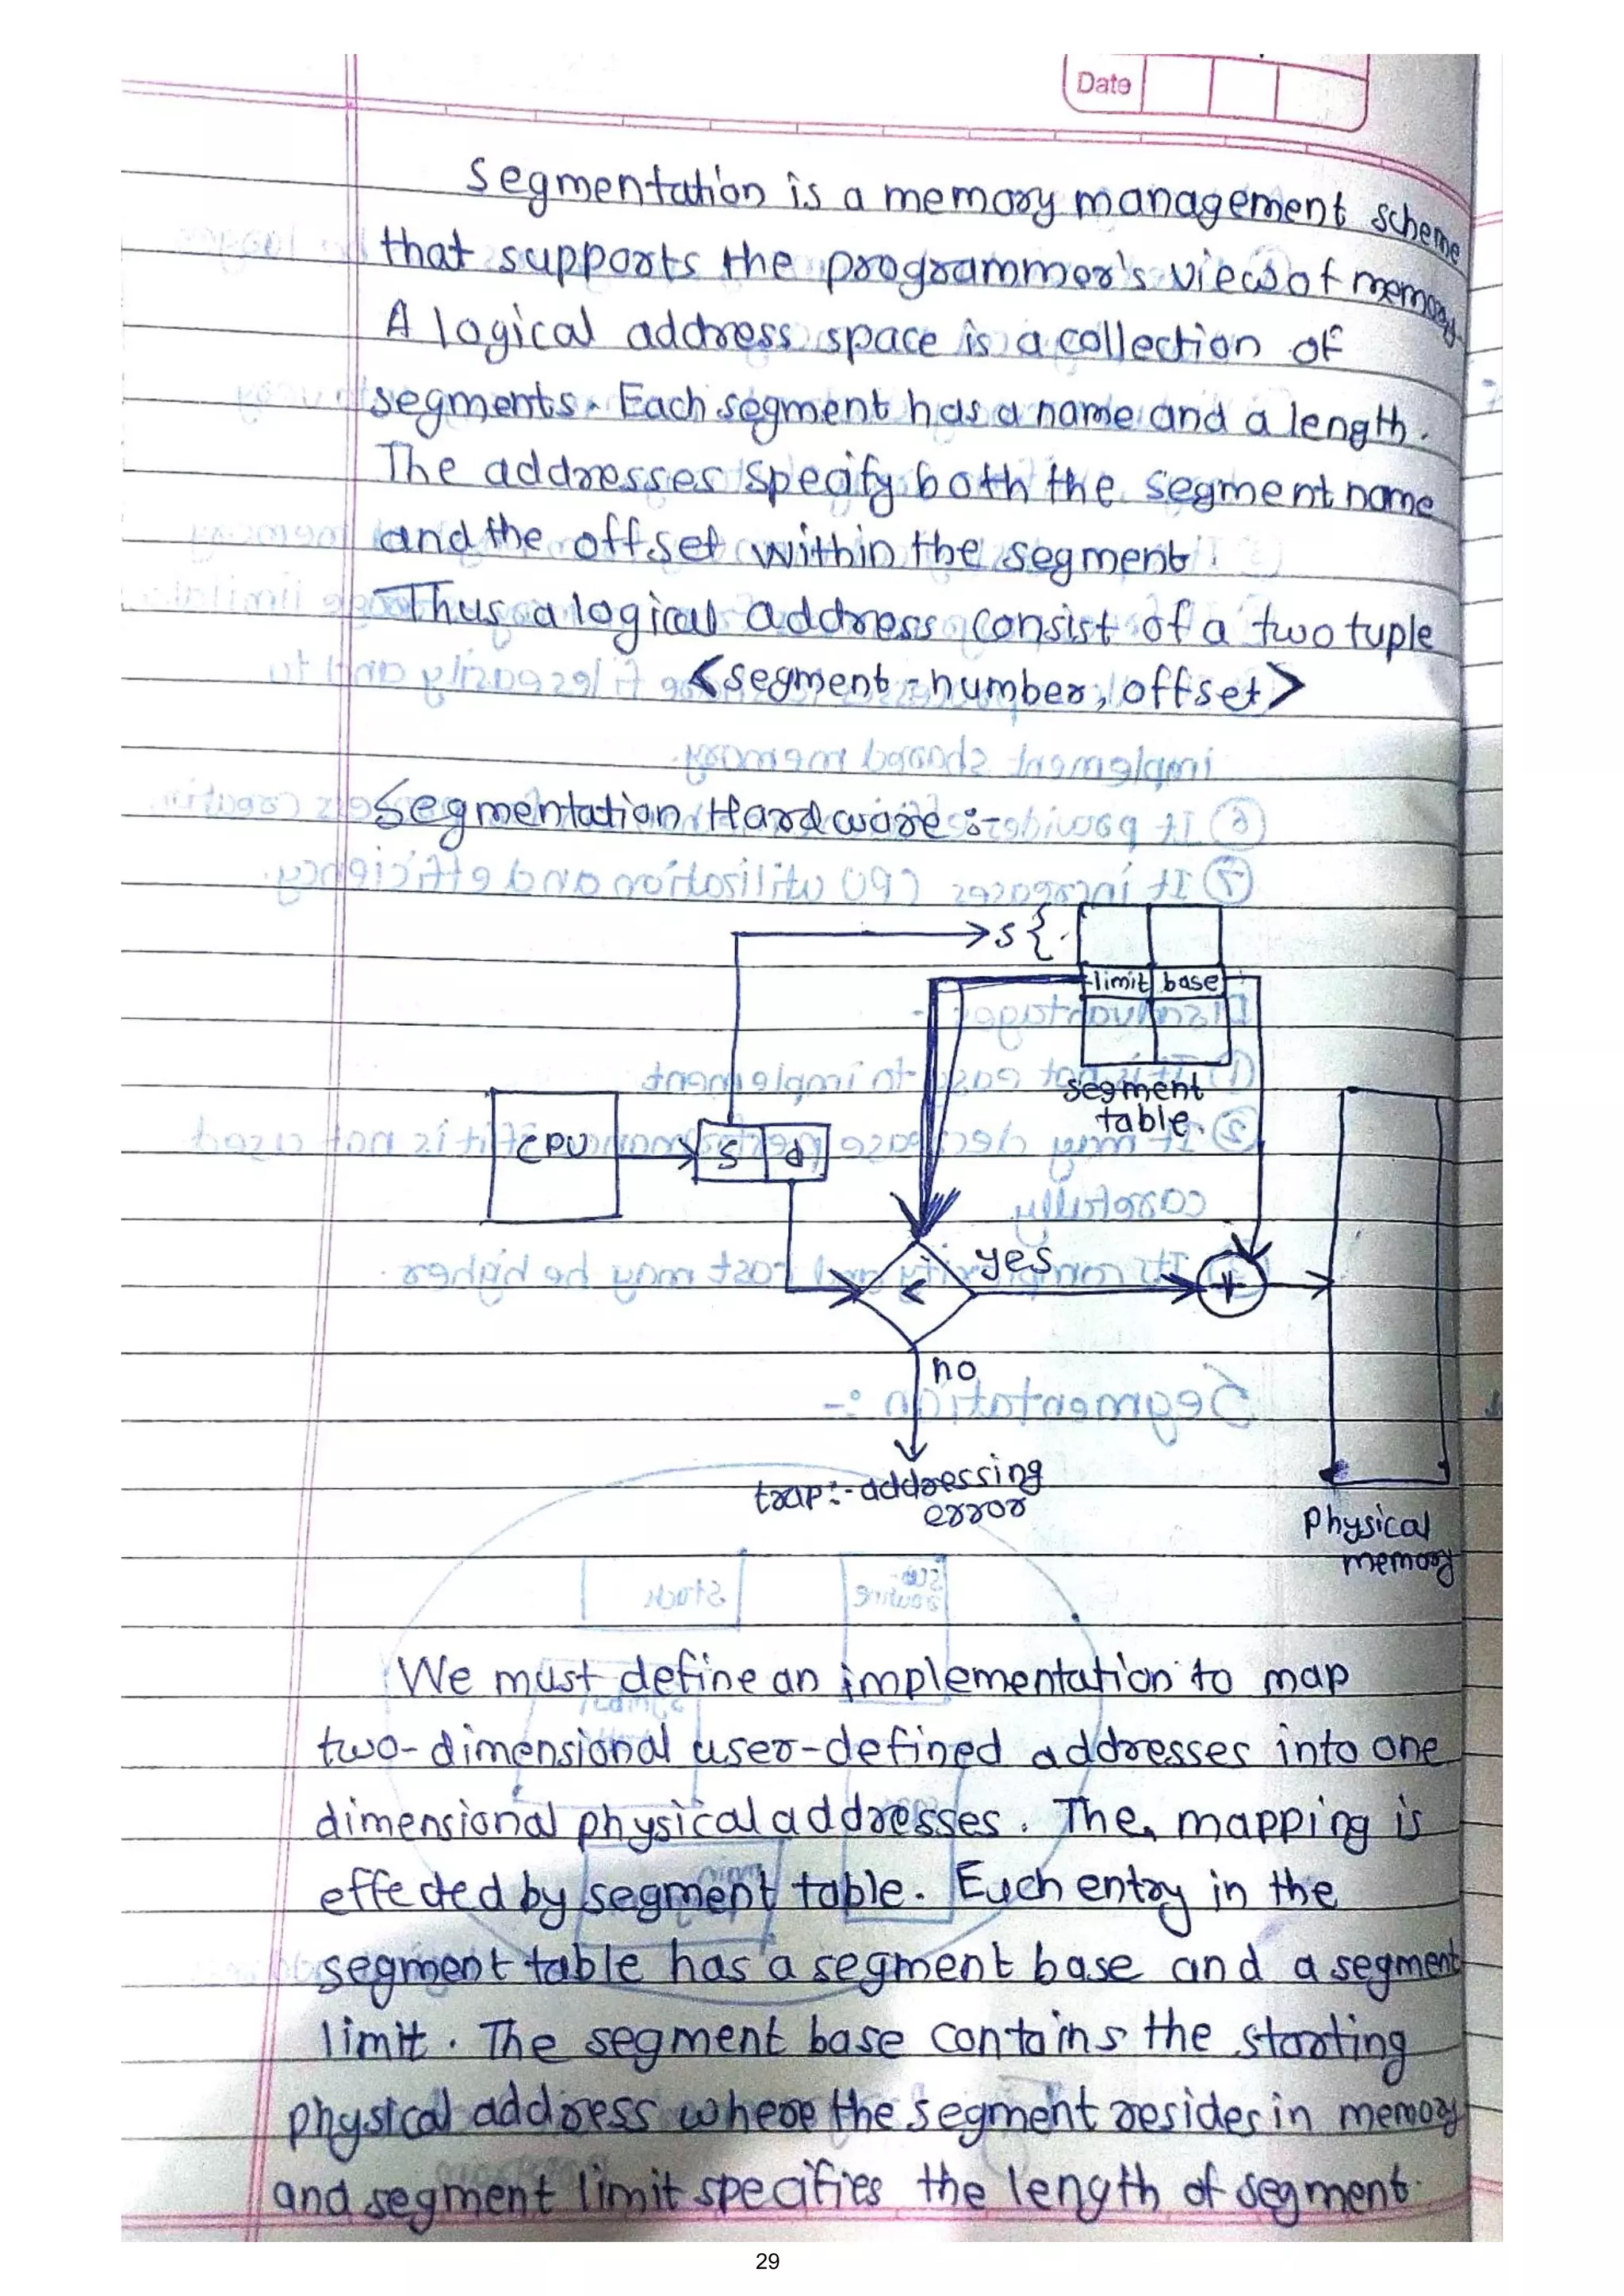 Date
Segmentation is a memory management scheme
that supports the programmer's view of memory.
A logical address space is a collection of
segments. Each segment has a name and a length.
The addresses specify both the segment name
and the offset within the segment.
Thus a logical address consist of a two tuple
<segment-number, offset>
Segmentation Hardware :-
s {
limit base
segment
table.
CPU
s d
yes
<
+
no
trap:- addressing
error
Physical
memory
We must define an implementation to map
two-dimensional user-defined addresses into one
dimensional physical addresses. The mapping is
effected by segment table. Each entry in the
segment table has a segment base and a segment
limit. The segment base contains the starting
physical address where the segment resides in memory
and segment limit specifies the length of segment.
29